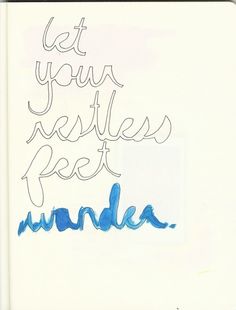 let
your
restless
feet
wander.